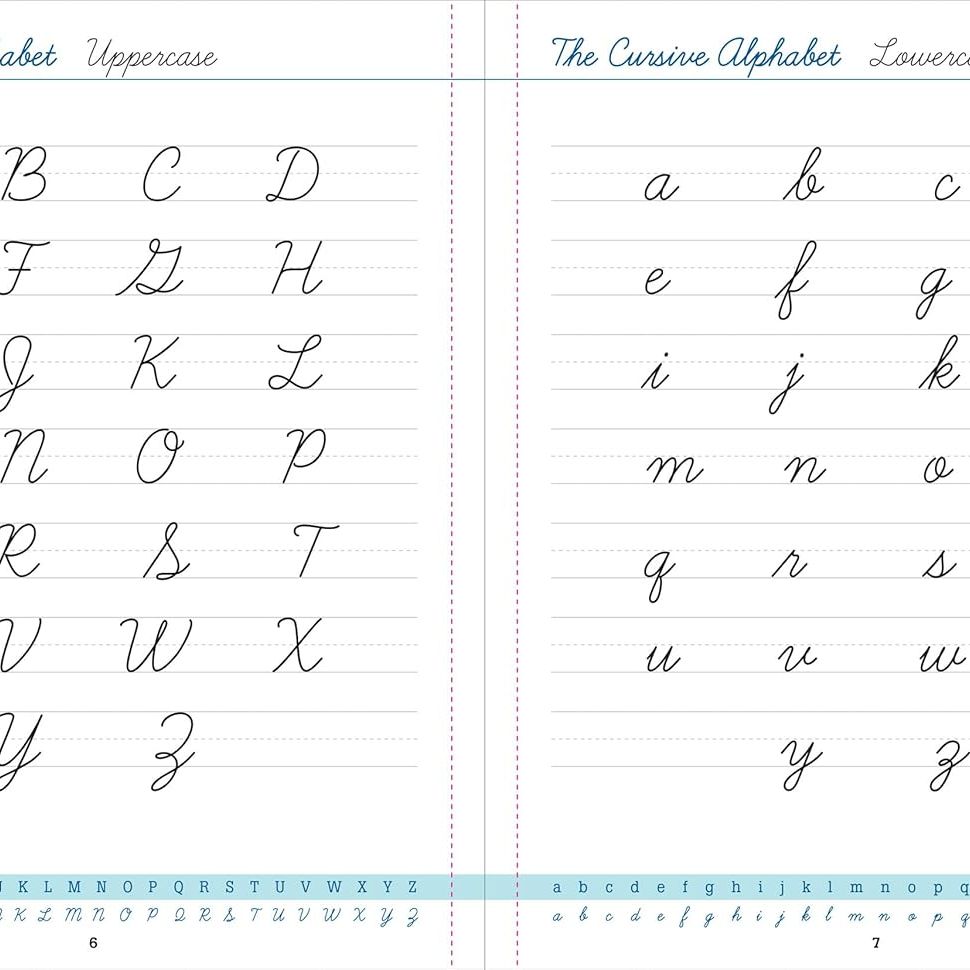 abet Uppercase
B C D
F G H
J K L
N O P
R S T
V W X
Y Z
J K L M N O P Q R S T U V W X Y Z
K L M N O P Q R S T U V W X Y Z
6
The Cursive Alphabet Lowerc
a b c
e f g
i j k
m n o
q r s
u v w
y z
a b c d e f g h i j k l m n o p q
a b c d e f g h i j k l m n o p q
7